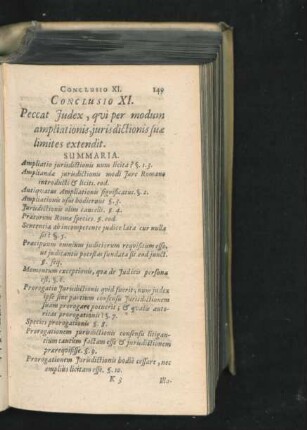 CONCLUSIO XI. 149
CONCLUSIO XI.
Peccat Judex, qvi per modum
ampliationis jurisdictionis suæ
limites extendit.
SUMMARIA.
Ampliatio jurisdictionis num licita? §. 1. 3.
Ampliandæ jurisdictionis modi Jure Romano
introducti & liciti. eod.
Antiquatus Ampliationis significatus. §. 2.
Ampliationis usus hodiernus §. 3.
Jurisdictionis olim tam §. 4.
Prætorum Romæ species. §. eod.
Sententia ab incompetente judice lata cur nulla
sit? §. 5.
Præcipuum omnium judiciorum requisitum esse,
ut judicantis potestas fundata sit eod. junct.
§. seq.
Momentum exceptionis, quæ de Judicis persona
est, §. 6.
Prorogatio Jurisdictionis quid fuerit, num judex
ipse sine partium consensu Jurisdictionem
suam prorogare potuerit, & quæ autoritas
prorogationis? §. 7.
Species prorogationis §. 8.
Prorogationem jurisdictionis consensu litigantium
tantum factam esse & jurisdictionem
præreqvisisse. §. 9.
Prorogationem Jurisdictionis hodie cessare, nec
amplius licitam esse. §. 10.
K 3 Mo-